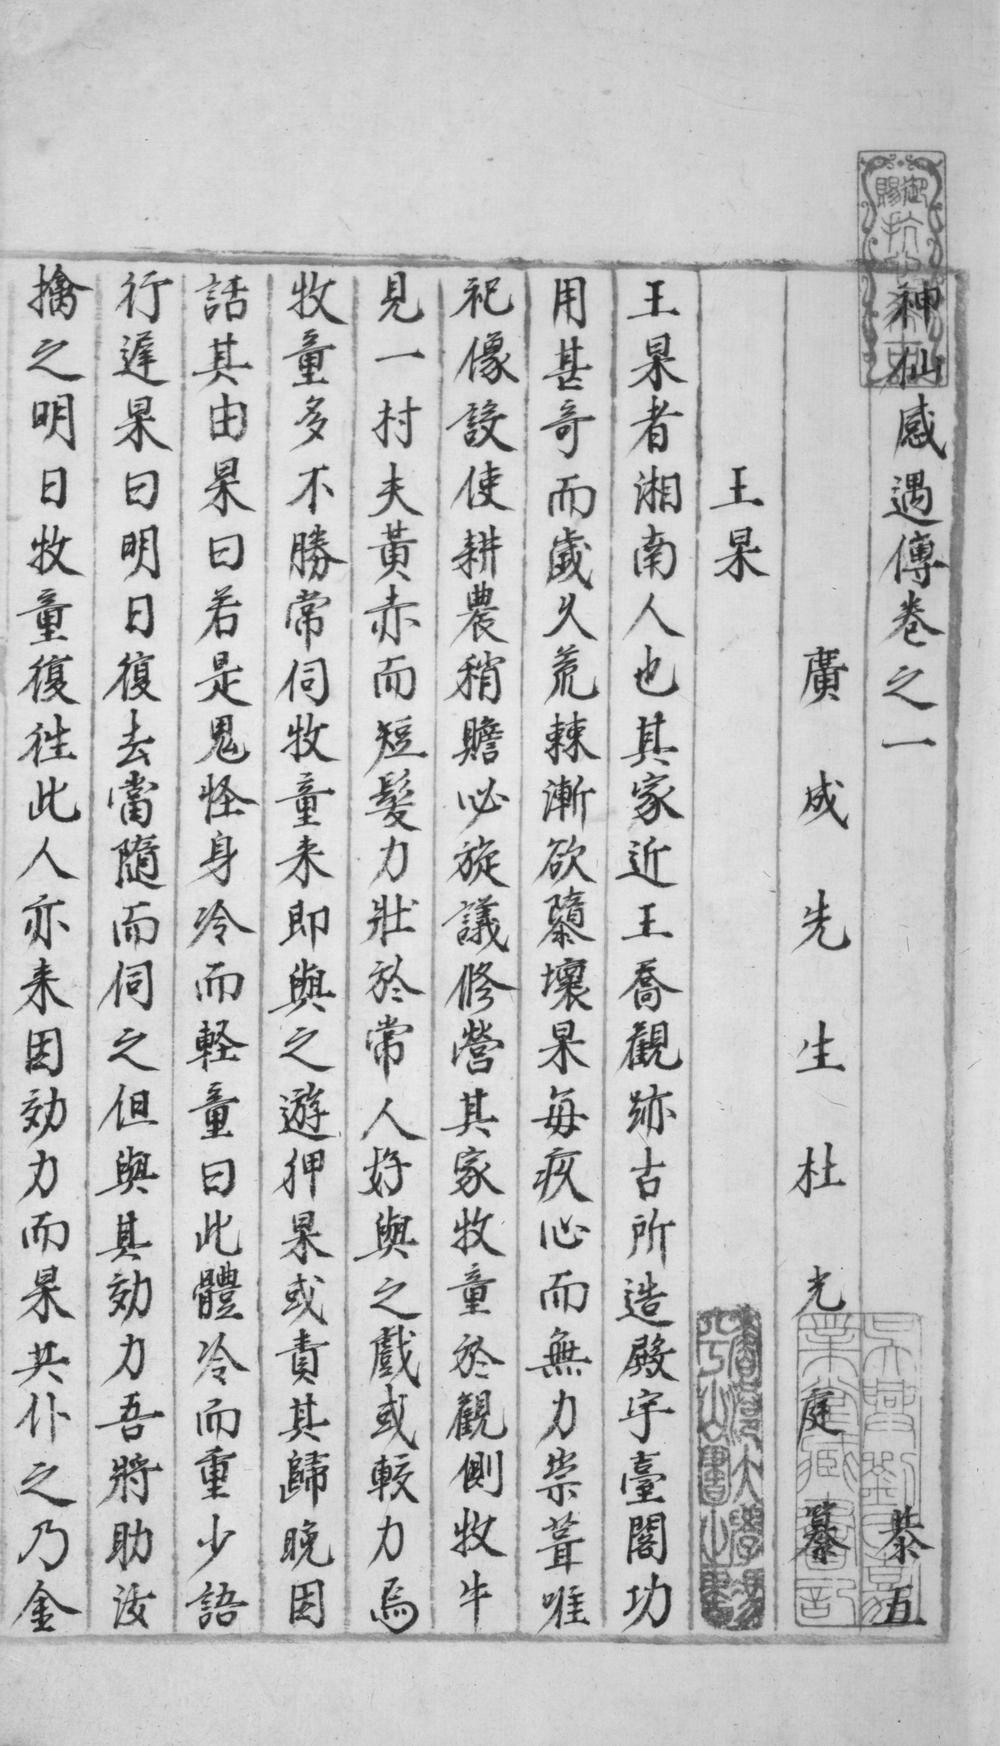 神仙感遇傳卷之一 恭五
廣成先生杜光庭纂
王杲
王杲者湘南人也其家近王喬觀跡古所造殿宇臺閣功
用甚奇而歲久荒棘漸欲隳壞杲每疚心而無力崇葺唯
祀像設使耕農稍贍必旋議修營其家牧童於觀側牧牛
見一村夫黃赤而短髮力壯於常人好與之戲或較力焉
牧童多不勝常伺牧童来即與之遊狎杲或責其歸晚因
話其由杲曰若是鬼怪身冷而軽童曰此體冷而重少語
行遅杲曰明日復去當隨而伺之但與其効力吾將助汝
擒之明日牧童復徃此人亦来因効力而杲共仆之乃金